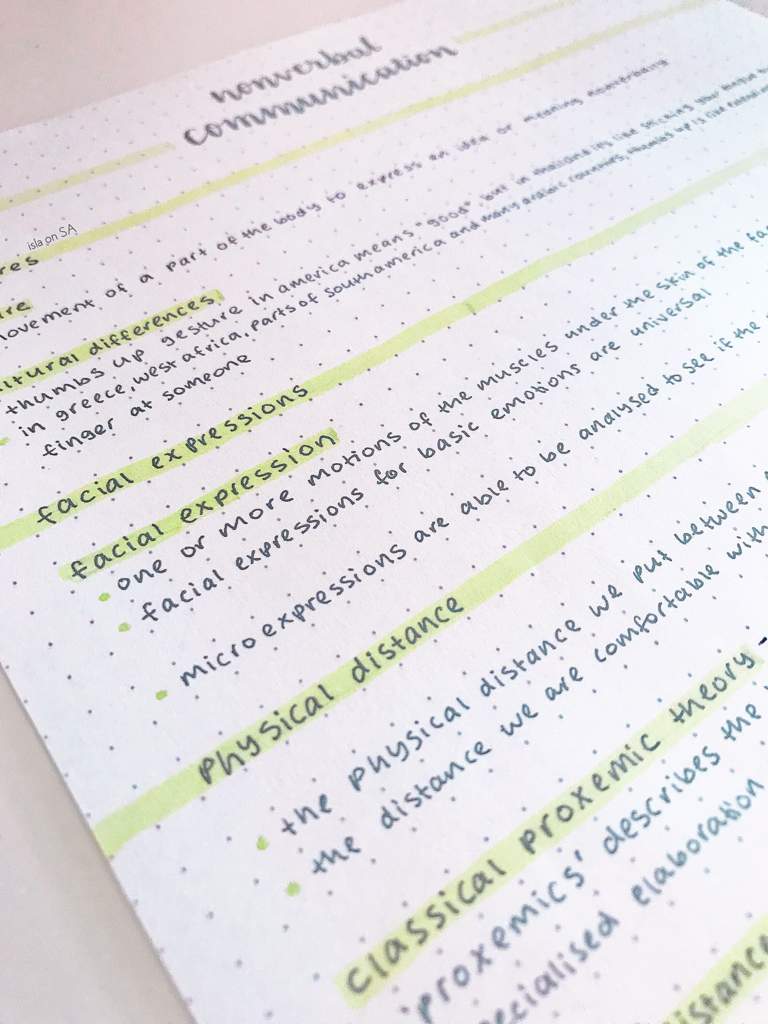 nonverbal
communication
isla on SA
res
re
movement of a part of the body to express an idea or meaning nonverbally
ltural differences
thumbs up gesture in america means "good" but in thailand its like sticking your tongue
in greece, west africa, parts of south america and many arabic countries, thumbs up is like
finger at someone
facial expressions
facial expression
• one or more motions of the muscles under the skin of the fac
• facial expressions for basic emotions are universal
• microexpressions are able to be analysed to see if the
physical distance
• the physical distance we put between
• the distance we are comfortable with
classical proxemic theory -
'proxemics' describes the
pecialised elaboration
istance